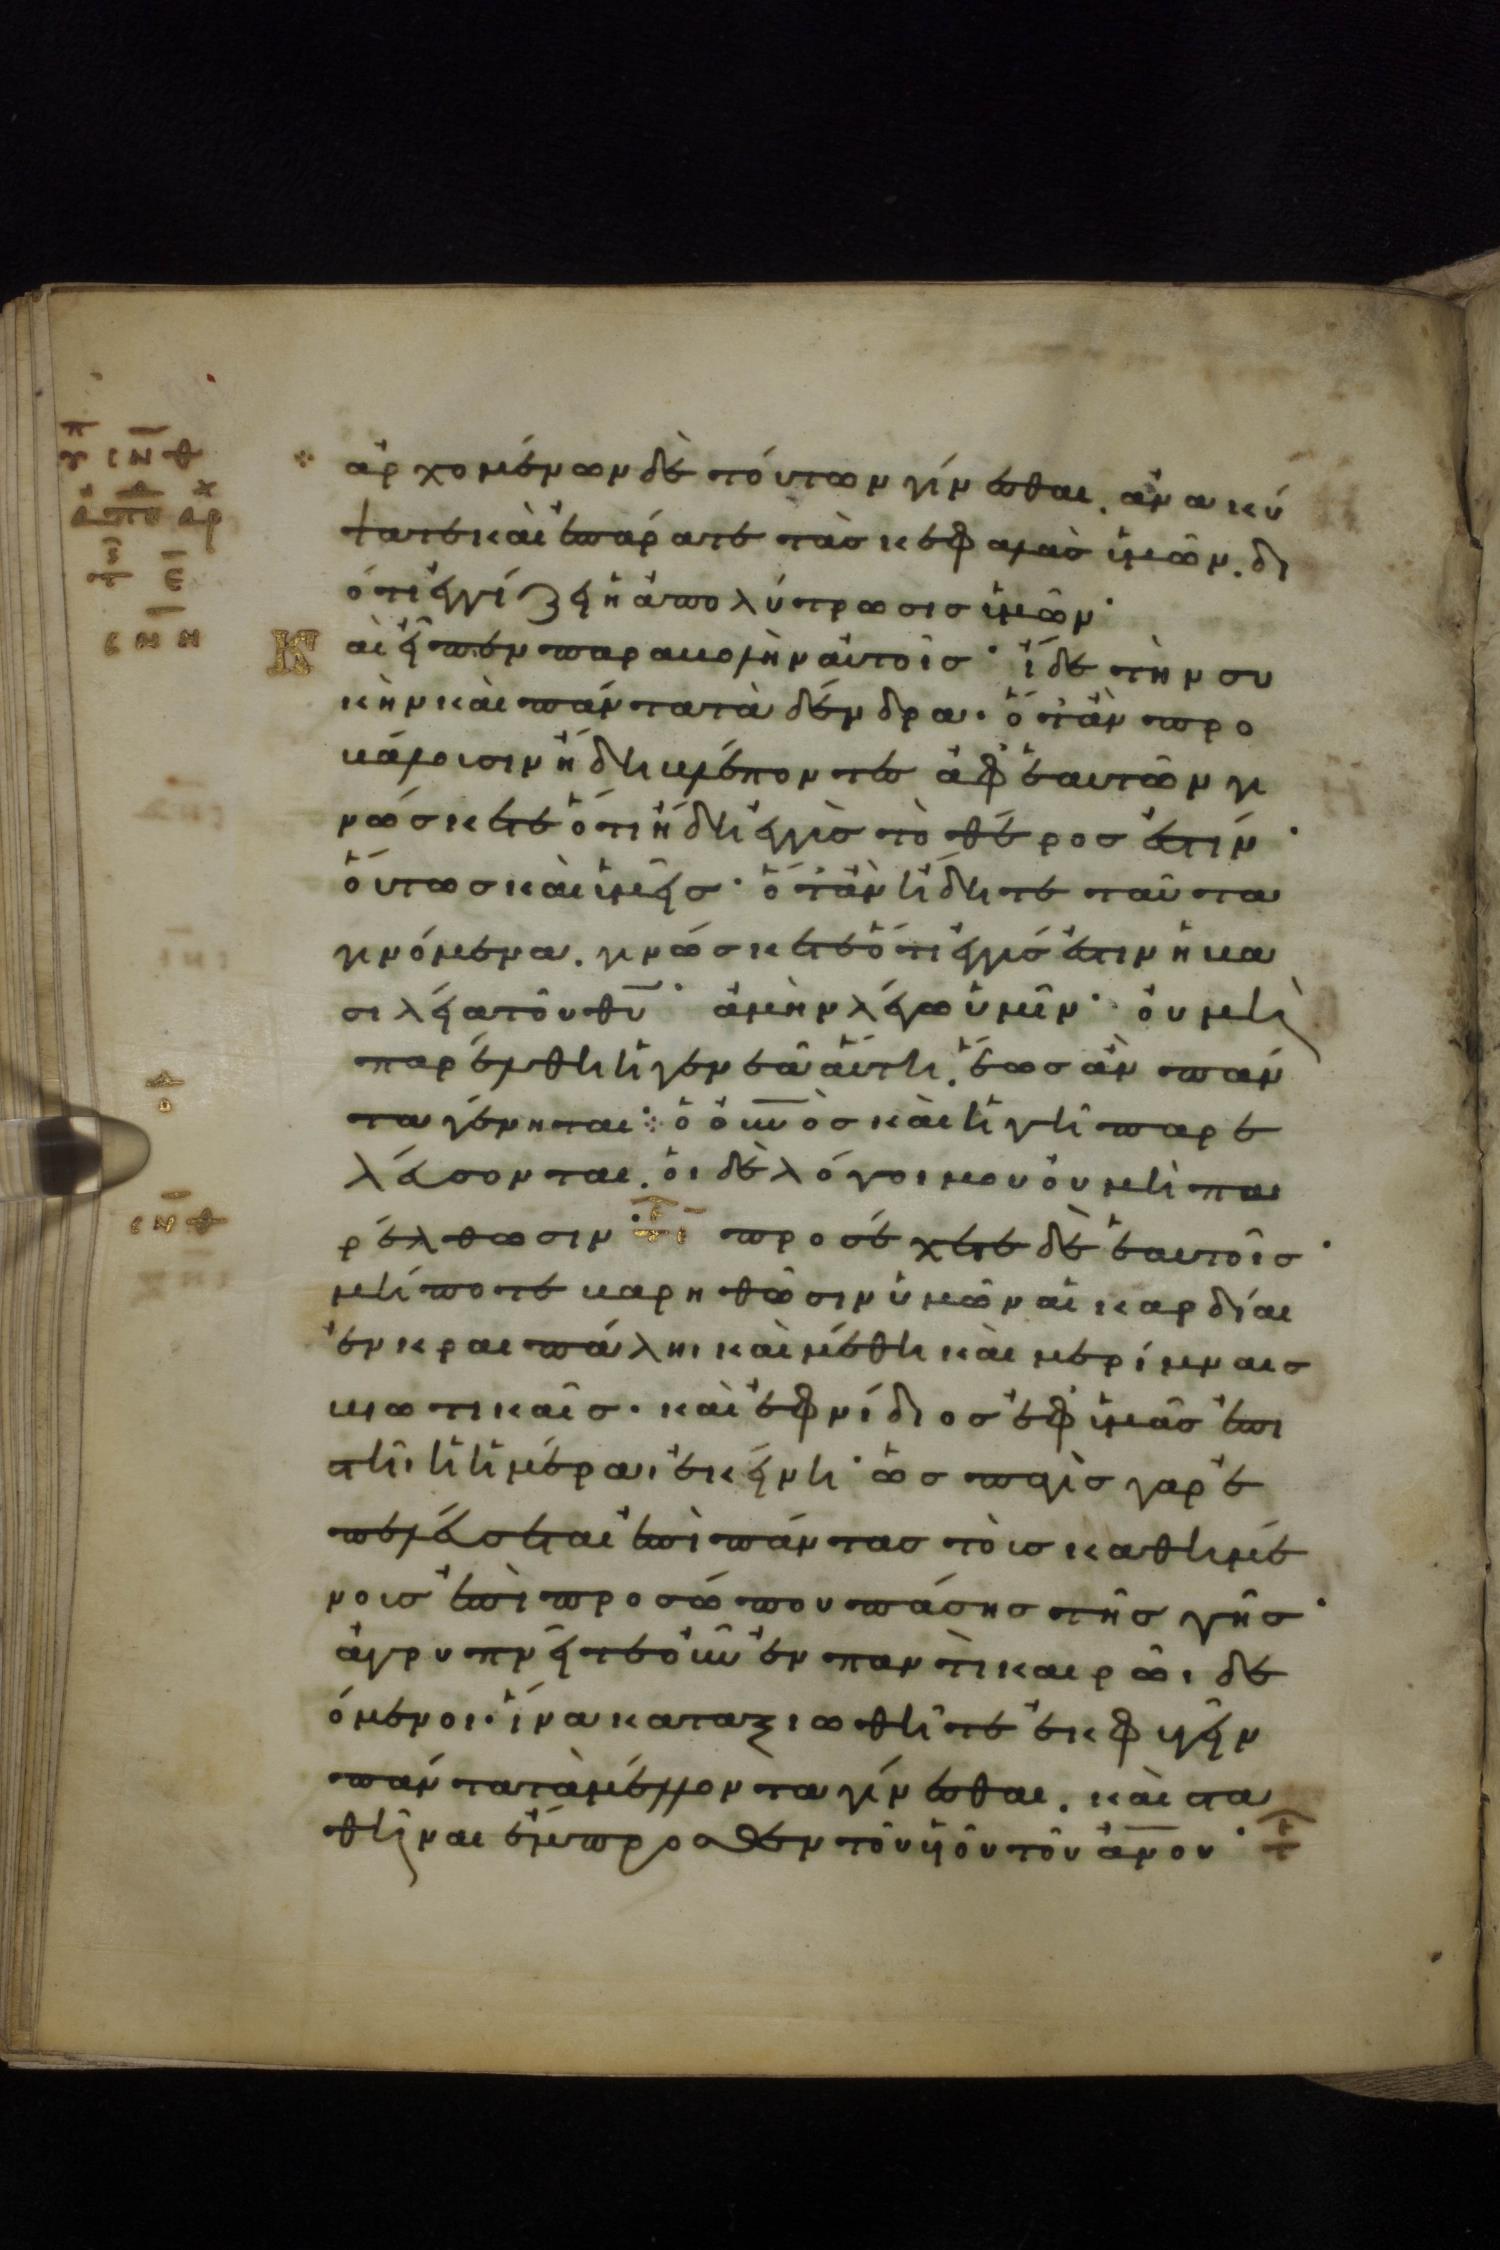 ἀρχομένων δὲ τούτων γίνεσθαι. ἀνακύ
ψατε καὶ ἐπάρατε τὰσ κεφαλὰσ ὑμῶν. δι
ότι ἐγγίζει ἡ ἀπολύτρωσισ ὑμῶν·
Καὶ εἶπεν παραβολὴν αὐτοῖσ· ἴδετε τὴν συ
κὴν καὶ πάντα τὰ δένδρα· ὅταν προ
βάλωσιν ἤδη βλέποντεσ ἀφ ἑαυτῶν γι
νώσκετε ὅτι ἤδη ἐγγὺσ τὸ θέροσ ἐστίν·
ὅυτωσ καὶ ὑμεῖσ· ὅταν ἴδητε ταῦτα
γινόμενα. γινώσκετε ὅτι ἐγγύσ ἐστιν ἡ βα
σιλεία τοῦ θυ· ἀμὴν λέγω ὑμῖν· ὀυ μὴ
παρέλθη ἡ γενεὰ ἁύτη. ἕωσ ἂν πάν
τα γένηται· ὁ ὀυνὸσ καὶ ἡ γῆ παρε
λεύσονται. ὁι δὲ λόγοι μου ὀυ μὴ πα
ρέλθωσιν· προσέχετε δὲ ἑαυτοῖσ·
μήποτε βαρηθῶσιν ὑμῶν αἱ καρδίαι
ἐν κραιπάληι καὶ μέθη καὶ μερίμναισ
βιωτικαῖσ· καὶ ἐφνίδιοσ ἐφ ὑμᾶσ ἐπι
στῆι ἡ ἡμέραι ἐκείνη· ὡσ παγὶσ γαρ ἐ
πελεύσεται ἐπὶ πάντασ τοὺσ καθημέ
νουσ ἐπὶ προσώπου πάσησ τῆσ γῆσ·
ἀγρυπνεῖτε ὀυν ἐν παντὶ καιρῶι δε
όμενοι· ἵνα καταξιωθῆτε ἐκφυγεῖν
πάντα τὰ μέλλοντα γίνεσθαι. καὶ στα
θῆναι ἔμπροσθεν τοῦ ὑιοῦ τοῦ ἀνου·